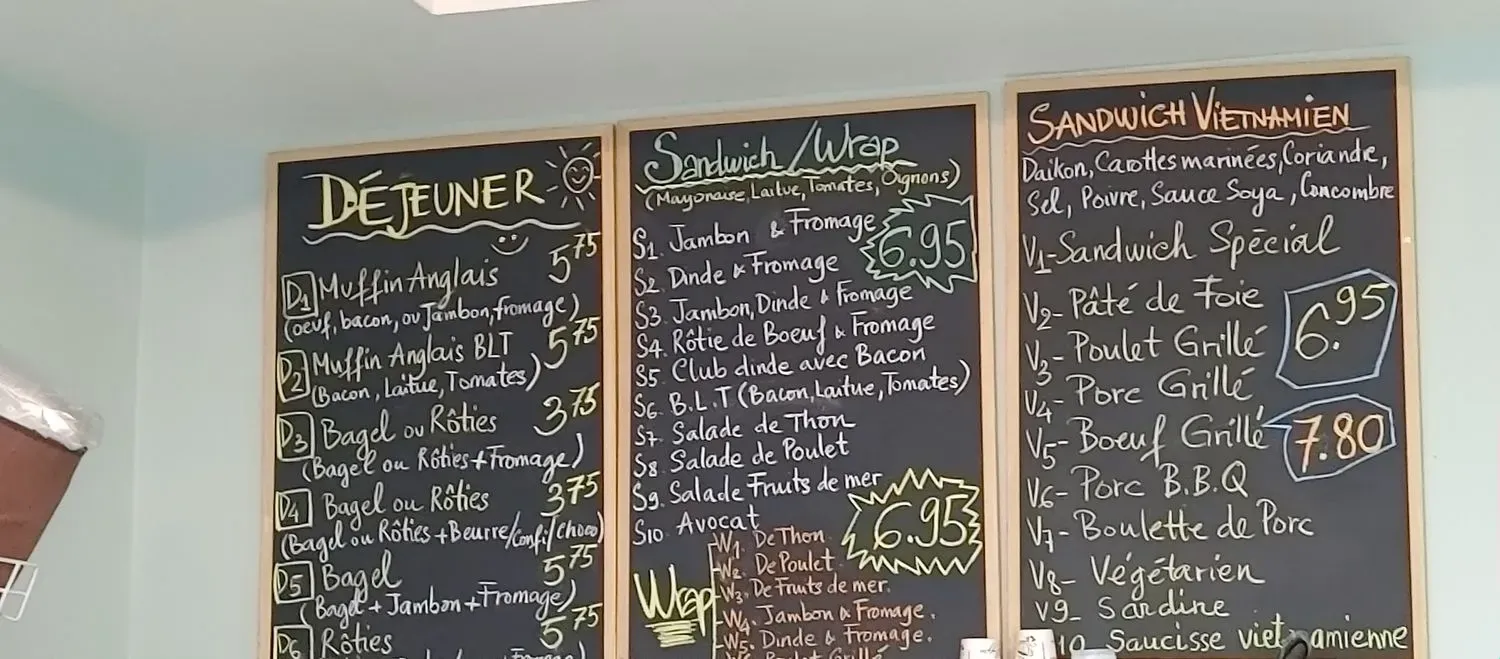 DÉJEUNER
D1 Muffin Anglais 5.75
(oeuf, bacon, ou Jambon, fromage)
D2 Muffin Anglais BLT 5.75
(Bacon, Laitue, Tomates)
D3 Bagel ou Rôties 3.75
(Bagel ou Rôties + Fromage)
D4 Bagel ou Rôties 3.75
(Bagel ou Rôties + Beurre/Confi/choco)
D5 Bagel 5.75
(Bagel + Jambon + Fromage)
D6 Rôties 5.75
Sandwich / Wrap
(Mayonaise, Laitue, Tomates, Oignons)
S1. Jambon & Fromage
6.95
S2. Dinde & Fromage
S3. Jambon, Dinde & Fromage
S4. Rôtie de Boeuf & Fromage
S5. Club dinde avec Bacon
S6. B.L.T (Bacon, Laitue, Tomates)
S7. Salade de Thon
S8. Salade de Poulet
S9. Salade Fruits de mer
S10. Avocat
6.95
Wrap
W1. De Thon
W2. De Poulet
W3. De Fruits de mer.
W4. Jambon & Fromage.
W5. Dinde & Fromage.
W6. Poulet Grillé
SANDWICH VIETNAMIEN
Daikon, Carottes marinées, Coriandre,
Sel, Poivre, Sauce Soya, Concombre
V1-Sandwich Spécial
V2- Pâté de Foie
6.95
V3- Poulet Grillé
V4- Porc Grillé
V5- Boeuf Grillé 7.80
V6- Porc B.B.Q
V7- Boulette de Porc
V8- Végétarien
V9- Sardine
10 Saucisse vietnamienne